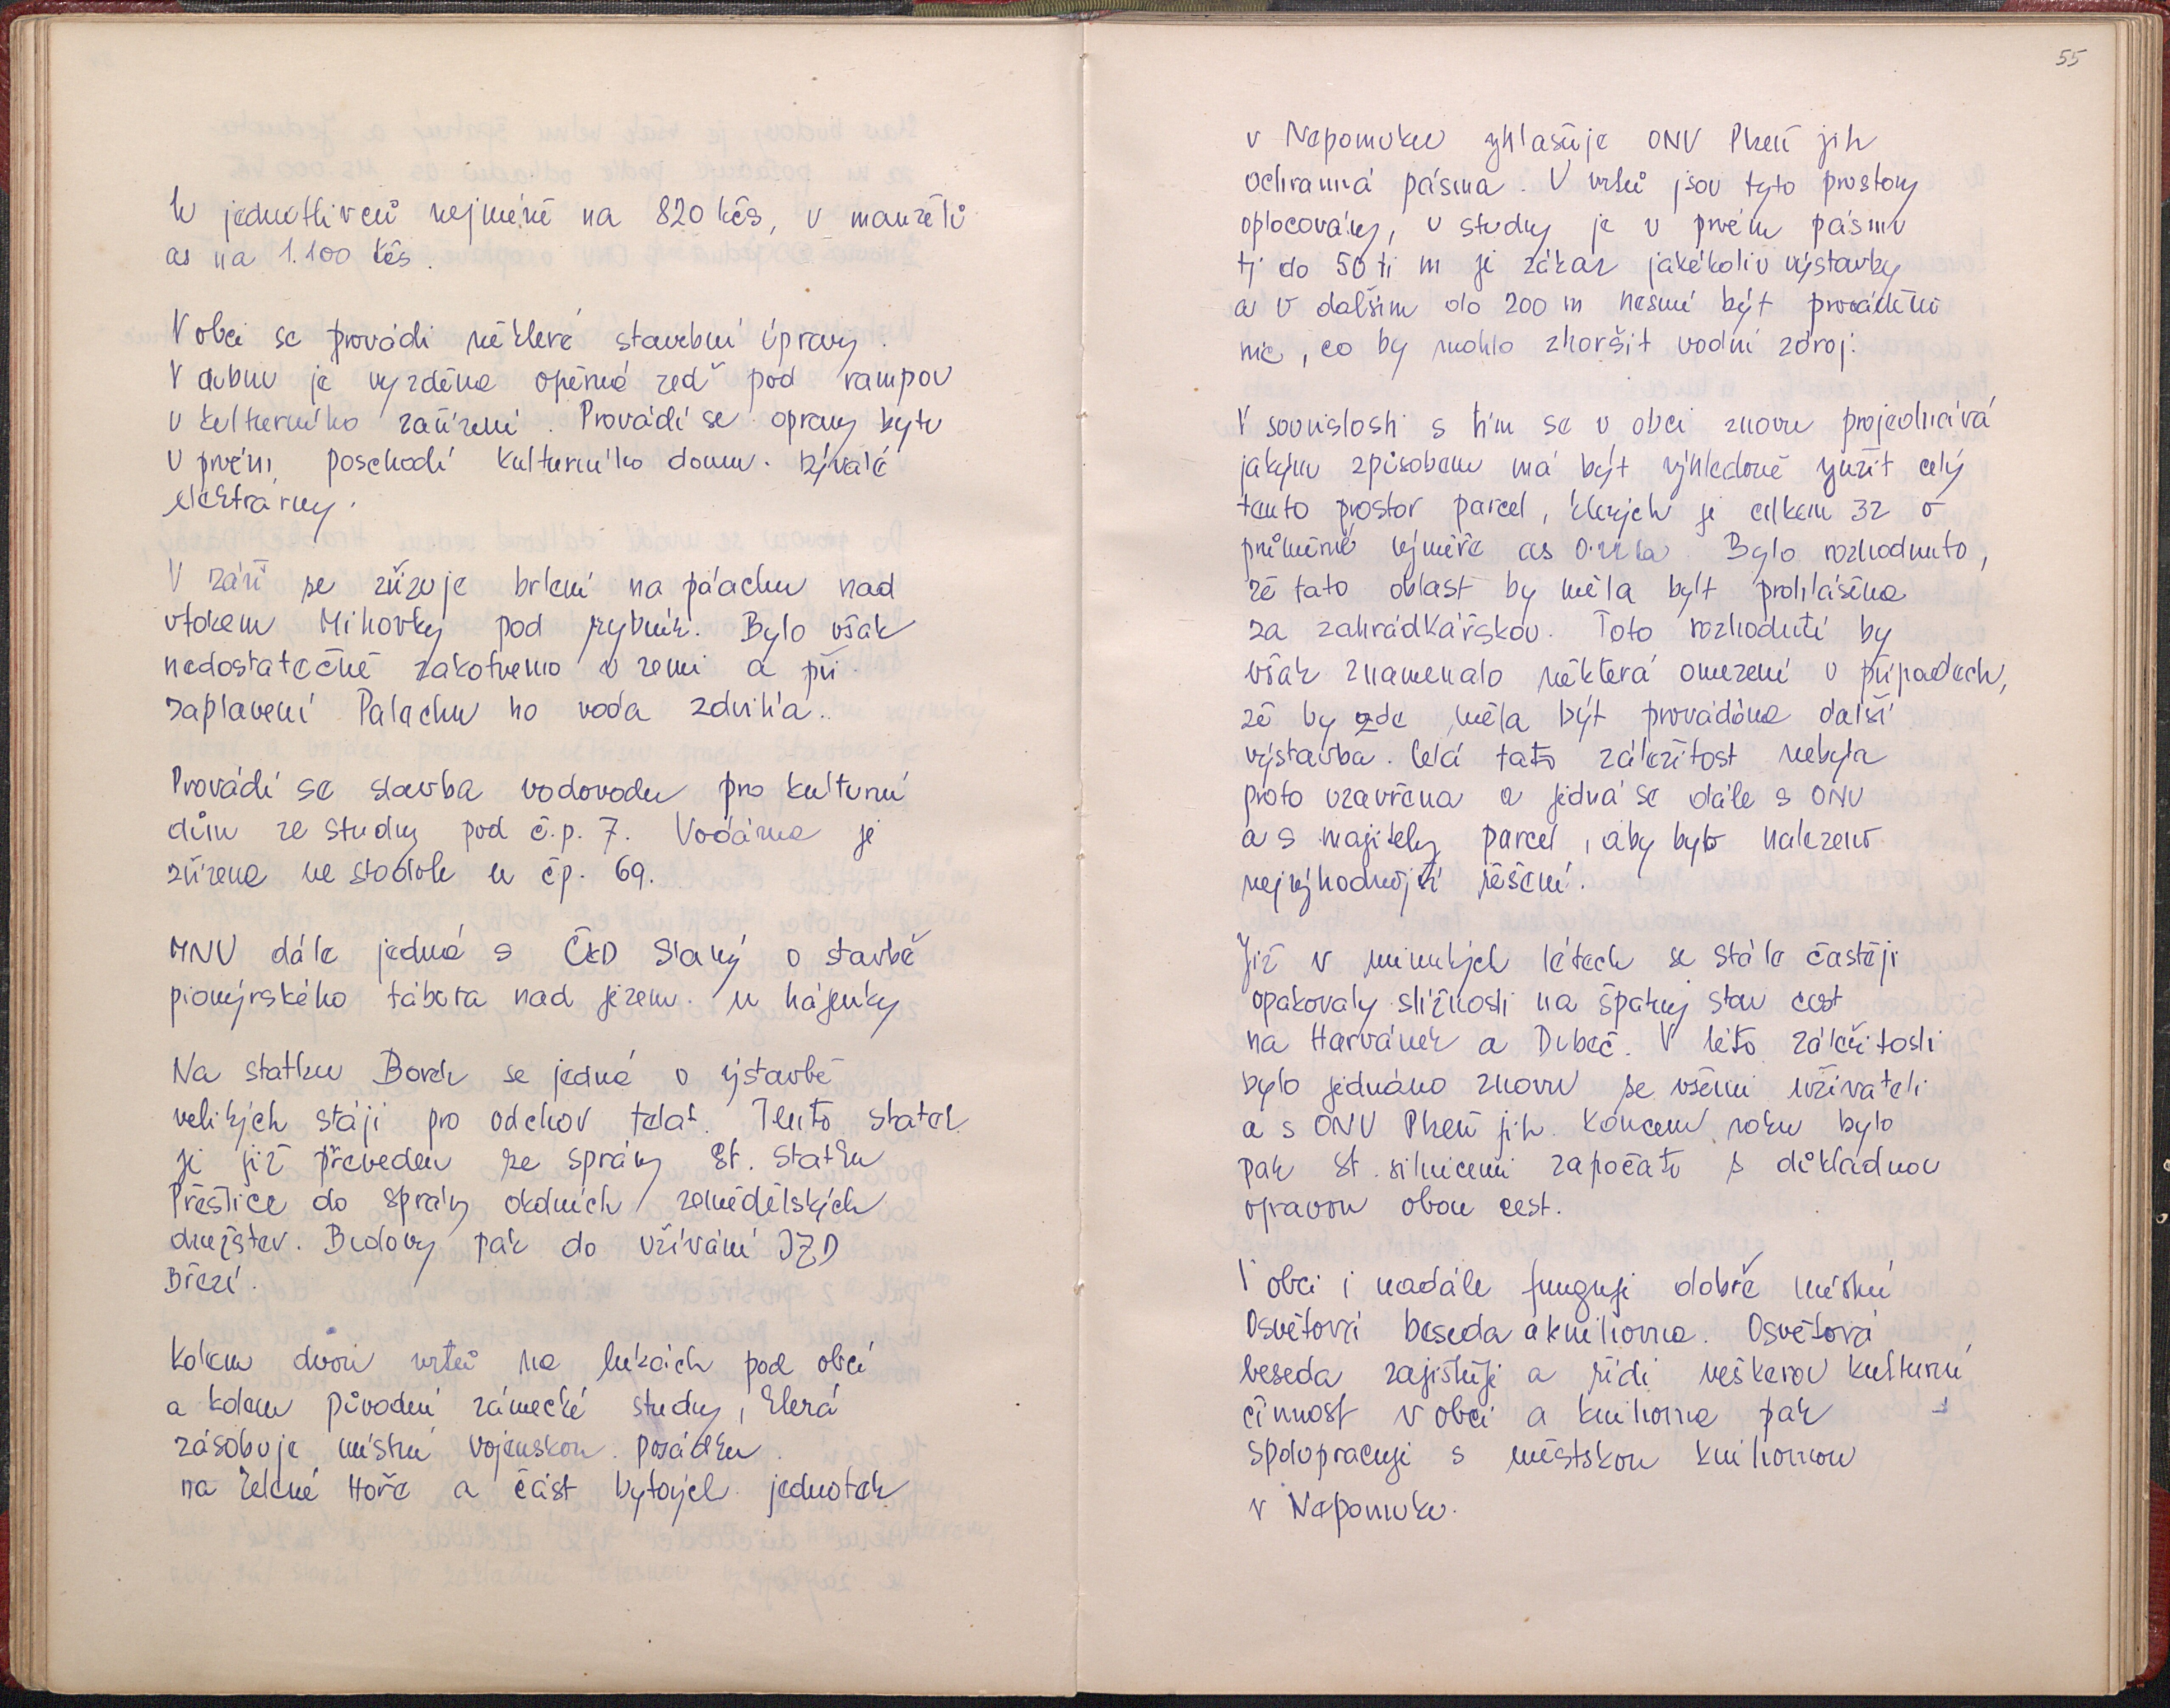 u jednotlivců nejméně na 820 kčs, u manželů
as na 1.100 kčs.
V obci se provádí některé stavební úpravy.
V dubnu je vyzděna opěrná zeď pod rampou
u kulturního zařízení. Provádí se opravy bytu
v prvém poschodí kulturního domu. bývalé
elektrárny.
V září se zřizuje brlení na palachu nad
vtokem Mihovky pod rybník. Bylo však
nedostatečně zakotveno v zemi a při
zaplavení Palachu ho voda zdvihla.
Provádí se stavba vodovodu pro kulturní
dům ze studny pod č.p. 7. Vodárna je
zřízena ve stodole u čp. 69.
MNV dále jedná s ČKD Slaný o stavbě
pionýrského tábora nad jezem. u hájenky
Na statku Borek se jedná o výstavbě
velikých stájí pro odchov telat. Tento statek
je již převeden ze správy St. Statku
Přeštice do správy okolních zemědělských
družstev. Budovy pak do užívání JZD
Březí.
Kolem dvou vrtů na lukách pod obcí
a kolem původní zámecké studny, která
zásobuje místní vojenskou posádku
na Zelené Hoře a část bytových jednotek
55
v Nepomuku vyhlašuje ONV Plzeň jih
ochranná pásma. U vrtů jsou tyto prostory
oplocovány, u studny je v prvém pásmu
tj do 50 ti m je zákaz jakékoliv výstavby
a v dalším do 200 m nesmí být prováděno
nic, co by mohlo zhoršit vodní zdroj.
V souvislosti s tím se v obci znovu projednává
jakým způsobem má být výhledově využit celý
tento prostor parcel, kterých je celkem 32 o
průměrné výměře as Bylo rozhodnuto,
že tato oblast by měla být prohlášena
za zahrádkářskou. Toto rozhodnutí by
však znamenalo některá omezení v případech,
že by zde měla být prováděna další
výstavba. Celá tato záležitost nebyla
proto uzavřena a jedná se dále s ONV
a s majiteli parcel, aby bylo nalezeno
nejvýhodnější řešení.
Již v minulých létech se stále častěji
opakovaly stížnosti na špatný stav cest
na Harvánek a Dubeč. V této záležitosti
bylo jednáno znovu se všemi uživateli
a s ONV Plzeň jih. Koncem roku bylo
pak st. silnicemi započato s důkladnou
opravou obou cest.
V obci i nadále fungují dobře místní
Osvětová beseda a knihovna. Osvětová
beseda zajišťuje a řídí veškerou kulturní
činnost v obci a knihovna pak
spolupracuje s městskou knihovnou
v Nepomuku.